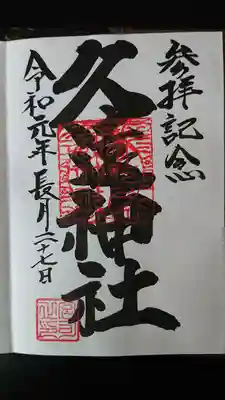 参拝記念
久延神社
令和元年長月二十七日